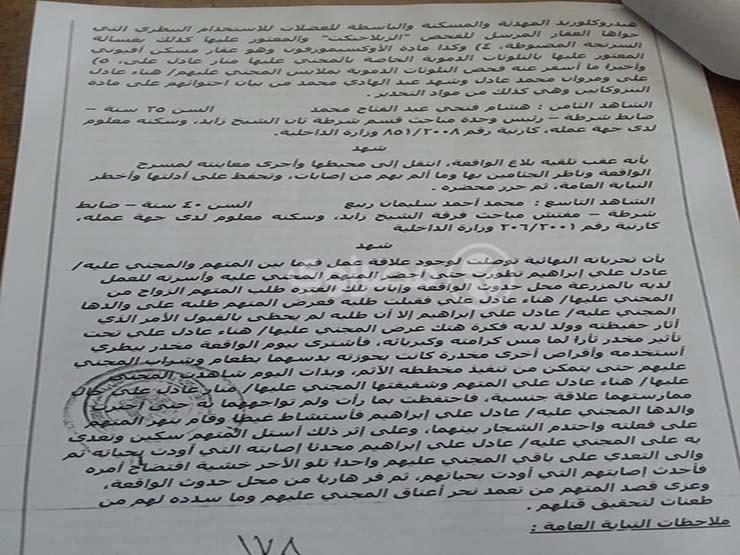 هيدروكلوريد المهدئة والمسكنة والباسطة للعضلات للاستخدام البيطري التي
حواها العقار المرسل للفحص "الزيلاجيكت" والمعثور عليها كذلك بغسالة
السرنجة المضبوطة، ٤) وكذا مادة الأوكسيمورفون وهو عقار مسكن أفيوني
المعثور عليها بالتلوثات الدموية الخاصة بالمجني عليها منار عادل على، ٥)
وأخيرا ما أسفر عنه فحص التلوثات الدموية بملابس المجني عليهم/ هناء عادل
على ومروان محمد عادل وشهد عبد الهادي محمد من بيان احتوائهم على مادة
البنزوكايين وهي كذلك من مواد التخدير .
الشاهد الثامن : هشام فتحي عبد الفتاح محمد السن ٣٥ سنة –
ضابط شرطة – رئيس وحدة مباحث قسم شرطة ثان الشيخ زايد، وسكنه معلوم
لدى جهة عمله، كارنية رقم ٨٥١/٢٠٠٨ وزارة الداخلية.
شهد
بأنه عقب تلقيه بلاغ الواقعة، انتقل إلى محيطها وأجرى معاينته لمسرح
الواقعة وناظر الجثامين بها وما ألم بهم من إصابات، وتحفظ على أدلتها وأخطر
النيابة العامة، ثم حرر محضره .
الشاهد التاسع : محمد أحمد سليمان ربيع السن ٤٠ سنة – ضابط
شرطة – مفتش مباحث فرقة الشيخ زايد، وسكنه معلوم لدى جهة عمله،
كارنية رقم ٢٠٦/٢٠٠١ وزارة الداخلية
شهد
بأن تحرياته النهائية توصلت لوجود علاقة عمل فيما بين المتهم والمجني عليه/
عادل علي إبراهيم تطورت حتى أحضر المتهم المجني عليه وأسرته للعمل
لديه بالمزرعة محل حدوث الواقعة وإبان تلك الفترة طلب المتهم الزواج من
المجني عليها/ هناء عادل علي فقبلت طلبه فعرض المتهم طلبه على والدها
المجني عليه/ عادل علي إبراهيم إلا أن طلبه لم يحظى بالقبول الأمر الذي
أثار حفيظته وولد لديه فكرة هتك عرض المجني عليها/ هناء عادل علي تحت
تأثير مخدر ثأرا لما مس كرامته وكبريائه، فأشترى بيوم الواقعة مخدر بيطري
أستخدمه وأقراص أخرى مخدرة كانت بحوزته بدسهما بطعام وشراب المجني
عليهم حتى يتمكن من تنفيذ مخططه الآثم، وبذات اليوم شاهدت المجني
عليها/ هناء عادل علي المتهم وشقيقتها المجني عليها/ منار عادل علي حال
ممارستهما علاقة جنسية، فاحتفظت بما رأت ولم تواجههما به حتى أخبرت
والدها المجني عليه/ عادل علي إبراهيم فأستشاط غيظا وقام بنهر المتهم
على فعلته واحتدم الشجار بينهما، وعلى إثر ذلك أستل المتهم سكين وتعدى
به على المجني عليه/ عادل علي إبراهيم محدثا إصابته التي أودت بحياته ثم
والى التعدي على باقي المجني عليهم واحدا تلو الآخر خشية افتضاح أمره
فأحدث إصابتهم التي أودت بحياتهم، ثم فر هاربا من محل حدوث الواقعة،
وعزى قصد المتهم من تعمد نحر أعناق المجني عليهم وما سدده لهم من
طعنات لتحقيق قتلهم .
ملاحظات النيابة العامة :
١٧٨